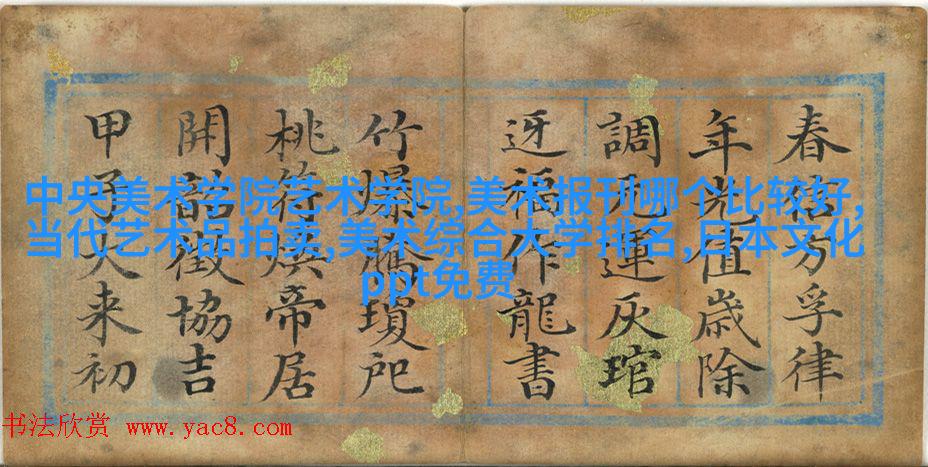 中央美术学院艺术学院,美术报刊哪个比较好,
当代艺术品拍卖,美术综合大学排名,日本文化
ppt免费
春信方孚律
年光值歲除
調元運灰琯
迓福作龍書
竹爆騰瓊
桃符煥帝居
開徵協吉
甲子大來初
书法欣赏 www.yac8.com